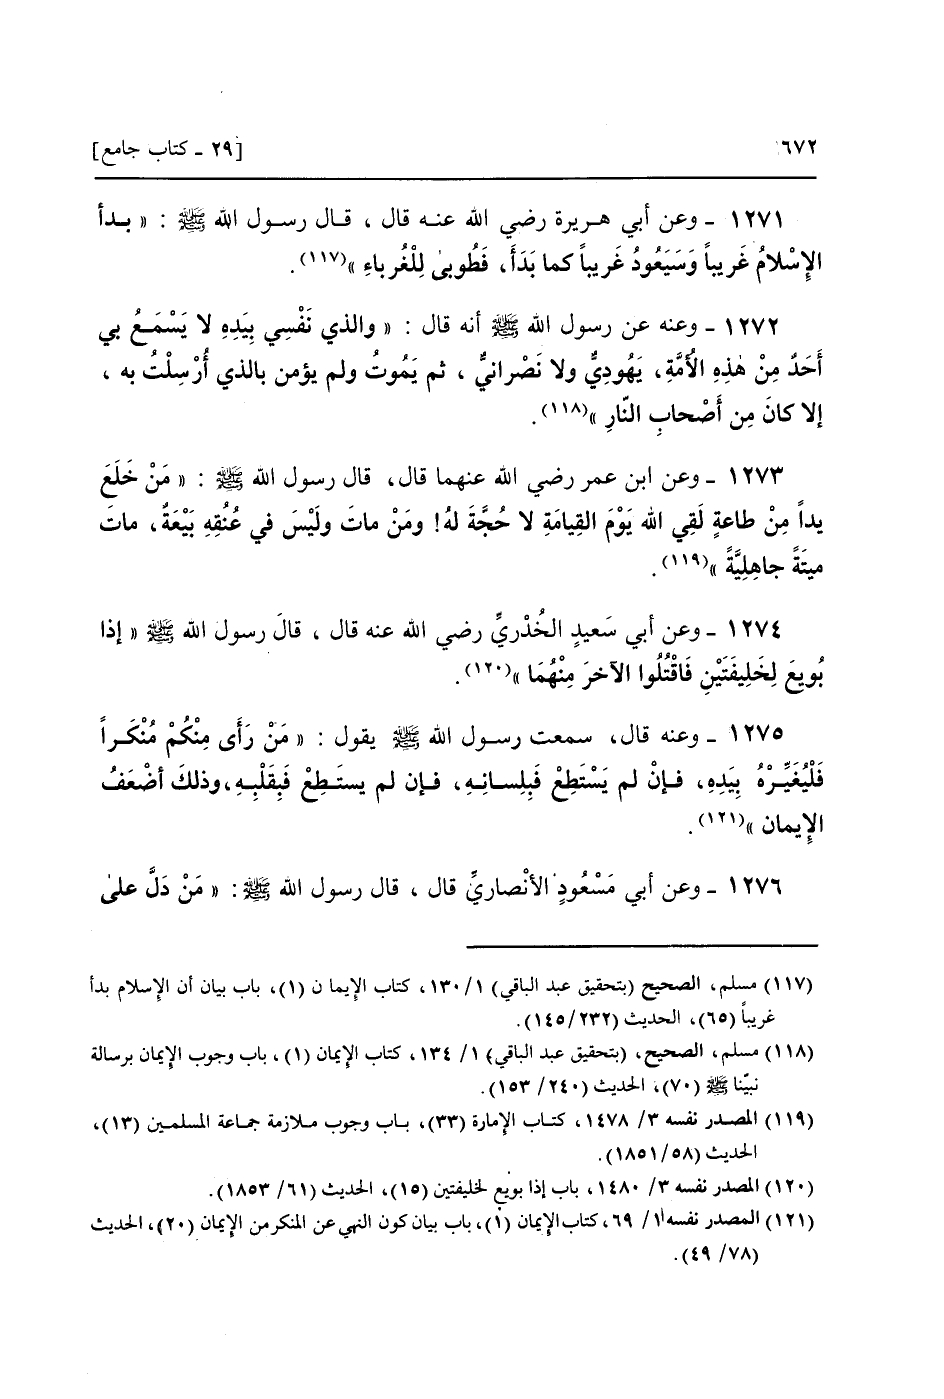 ٦٧٢ [٢٩ ـ كتاب جامع]
١٢٧١ ـ وعن أبي هريرة رضي الله عنه قال ، قال رسول الله ﷺ : « بدأ
الإِسْلامُ غَريباً وَسَيَعُودُ غَريباً كما بَدَأَ، فَطُوبىٰ لِلْغُرباءِ »(١١٧).
١٢٧٢ ـ وعنه عن رسول الله ﷺ أنه قال : « والذي نَفْسِي بِيَدِهِ لا يَسْمَعُ بي
أَحَدٌ مِنْ هٰذِهِ الأُمَّةِ، يَهُودِيٌّ ولا نَصْرانيٌّ ، ثم يَمُوتُ ولم يؤمن بالذي أُرْسِلْتُ به ،
إلا كانَ مِن أَصْحابِ النّارِ »(١١٨).
١٢٧٣ ـ وعن ابن عمر رضي الله عنهما قال، قال رسول الله ﷺ : « مَنْ خَلَعَ
يداً مِنْ طاعةٍ لَقِي الله يَوْمَ القِيامَةِ لا حُجَّةَ لهُ! ومَنْ ماتَ ولَيْسَ في عُنُقِهِ بَيْعَةٌ، ماتَ
ميتَةً جاهِلِيَّةً »(١١٩).
١٢٧٤ ـ وعن أبي سَعيدٍ الخُدْريِّ رضي الله عنه قال ، قالَ رسول الله ﷺ « إذا
بُويعَ لِخَلِيفَتَيْنِ فَاقْتُلُوا الآخرَ مِنْهُمَا »(١٢٠).
١٢٧٥ ـ وعنه قال، سمعت رسول الله ﷺ يقول : « مَنْ رَأَى مِنْكُمْ مُنْكَراً
فَلْيُغَيِّرْهُ بِيَدِهِ، فإنْ لم يَسْتَطِعْ فَبِلسانِهِ، فإن لم يستَطِعْ فَبِقَلْبِهِ،وذلكَ أضْعَفُ
الإِيمان »(١٢١).
١٢٧٦ ـ وعن أبي مَسْعُودٍ الأنْصاريِّ قال ، قال رسول الله ﷺ: « مَنْ دَلَّ علىٰ
(١١٧) مسلم، الصحيح (بتحقيق عبد الباقي) ١٣٠/١، كتاب الإِيما ن (١)، باب بيان أن الإِسلام بدأ
غريباً (٦٥)، الحديث (١٤٥/٢٣٢).
(١١٨) مسلم، الصحيح، (بتحقيق عبد الباقي) ١/ ١٣٤، كتاب الإِيمان (١)، باب وجوب الإِيمان برسالة
نبيّنا ﷺ (٧٠)، الحديث (٢٤٠/ ١٥٣).
(١١٩) المصدر نفسه ٣/ ١٤٧٨، كتاب الإمارة (٣٣)، باب وجوب ملازمة جماعة المسلمين (١٣)،
الحديث (١٨٥١/٥٨).
(١٢٠) المصدر نفسه ٣/ ١٤٨٠، باب إذا بويع لخليفتين (١٥)، الحديث (٦١/ ١٨٥٣).
(١٢١) المصدر نفسه ١/ ٦٩، كتاب الإِيمان (١)، باب بيان كون النهي عن المنكر من الإِيمان (٢٠)، الحديث
(٧٨/ ٤٩).